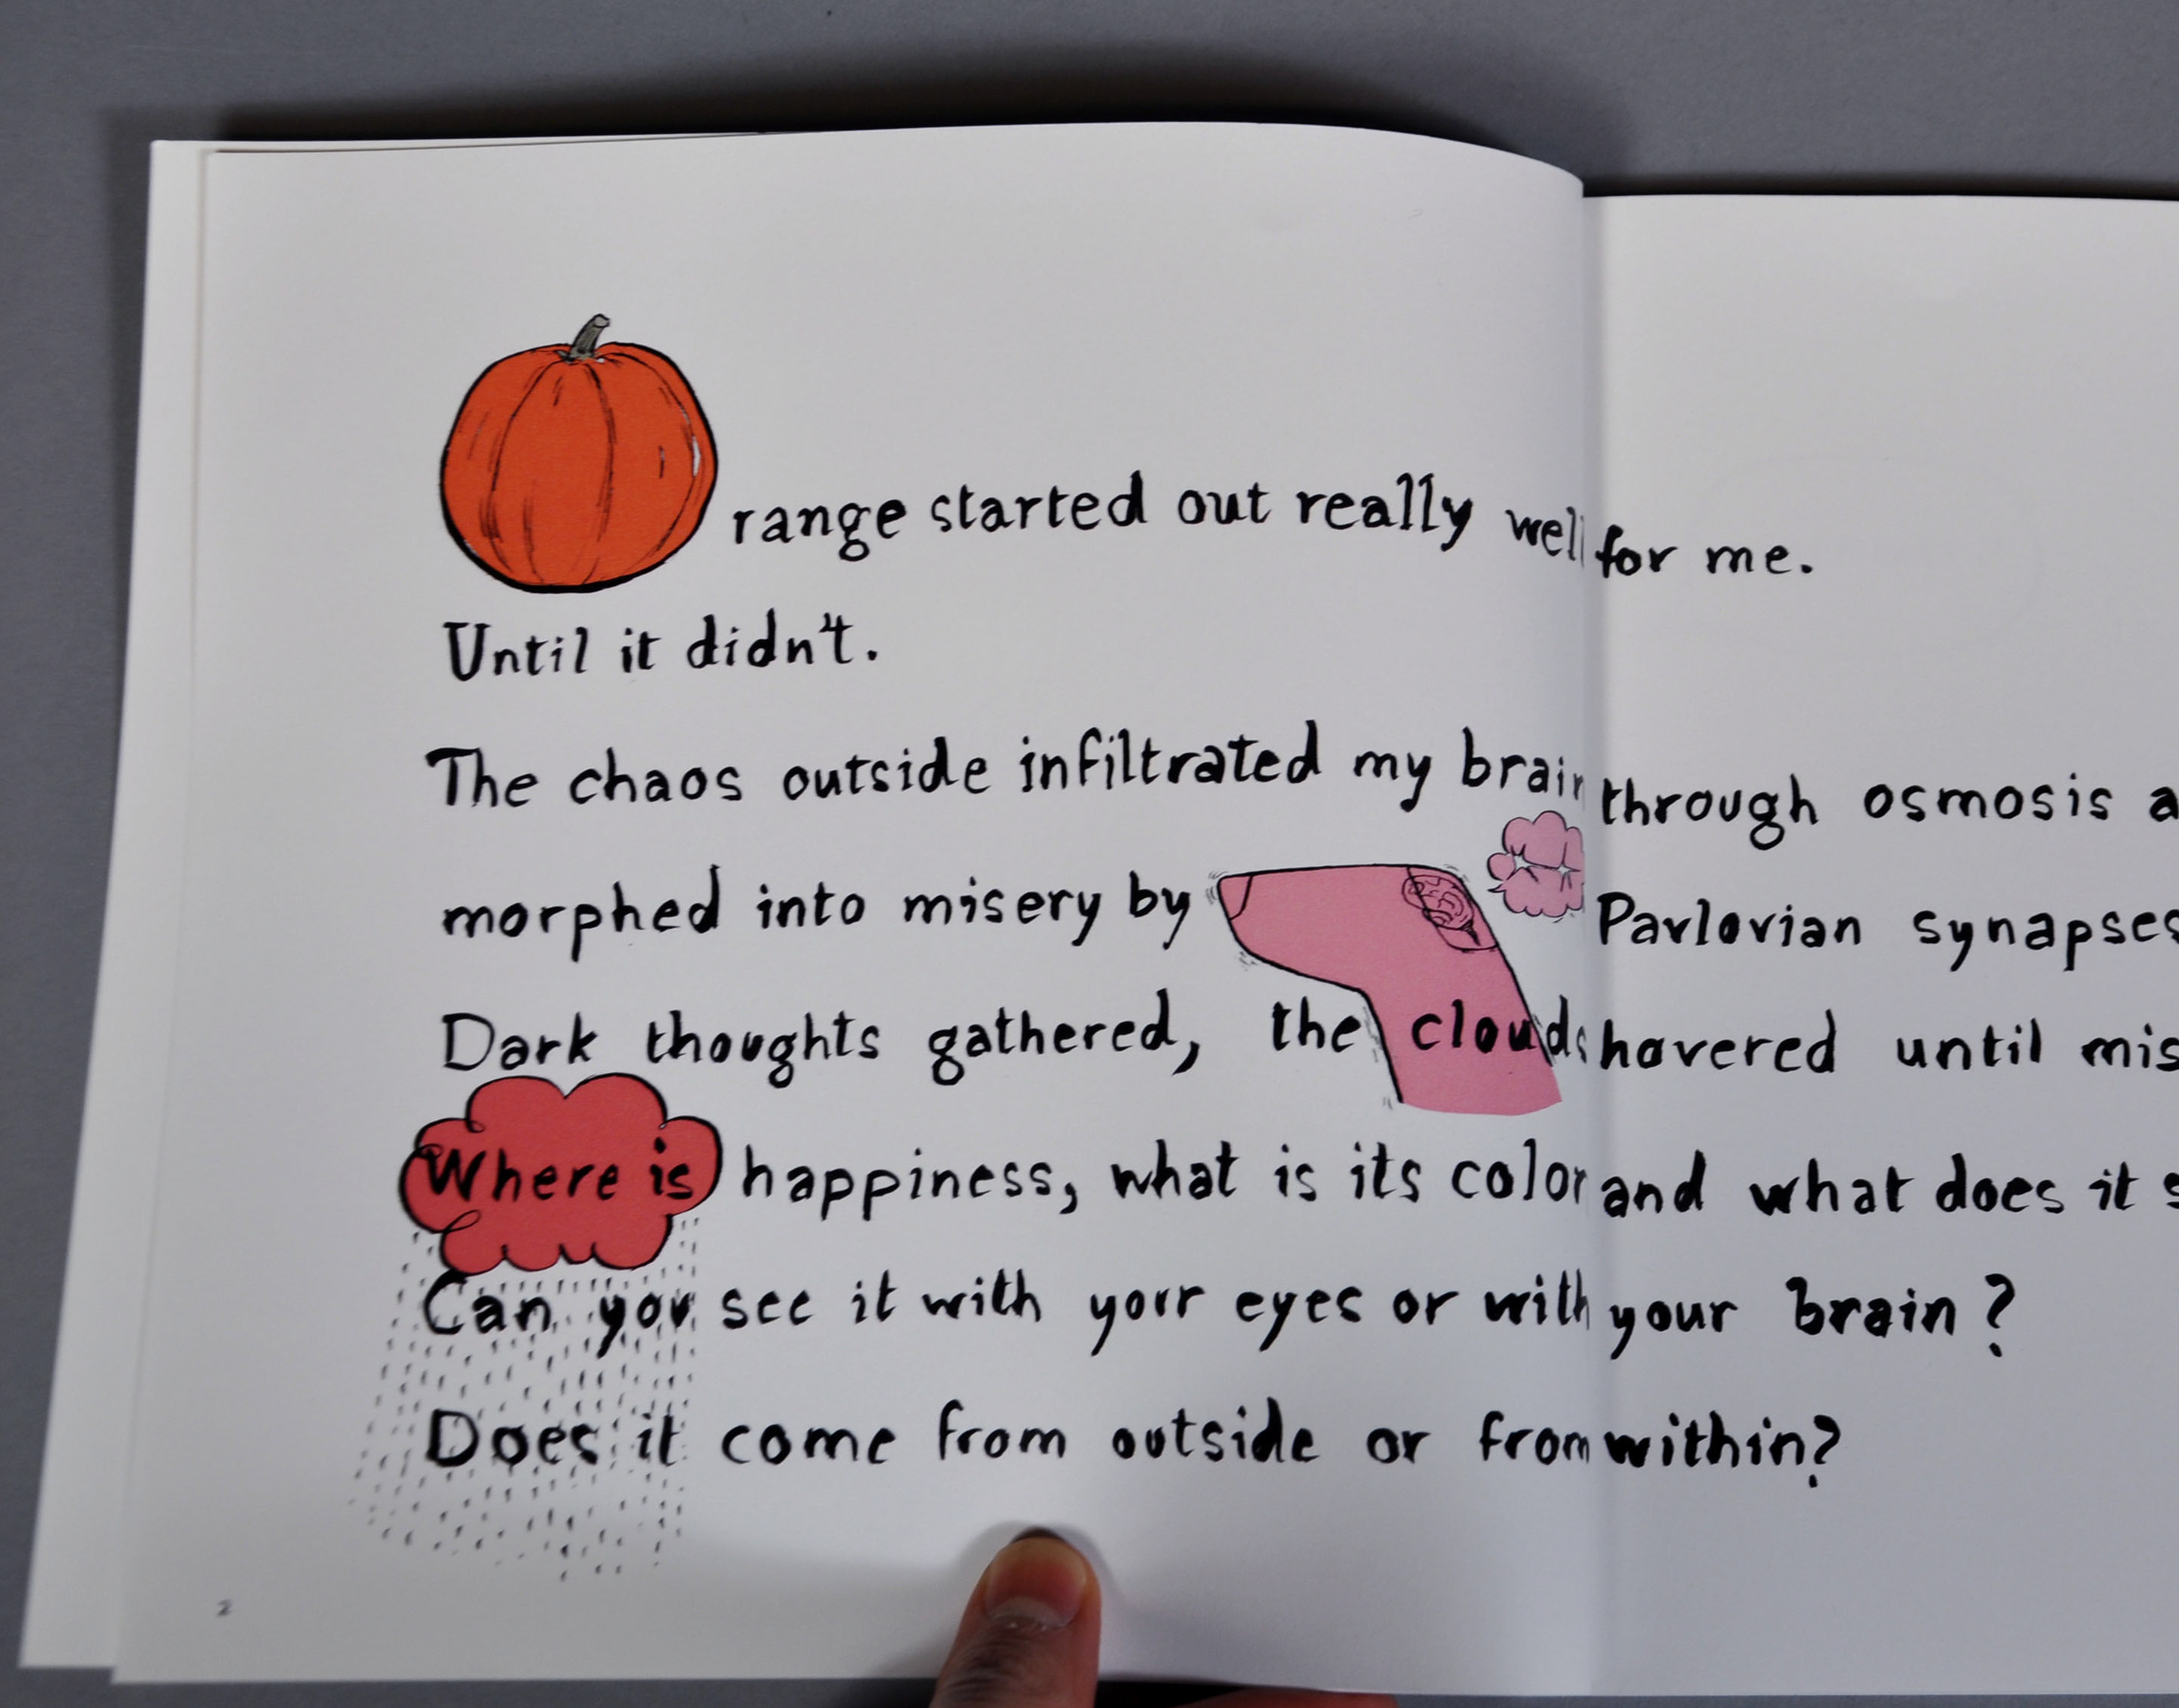 range started out really well for me.
Until it didn't.
The chaos outside infiltrated my brain through osmosis a
morphed into misery by Pavlovian synapses
Dark thoughts gathered, the clouds hovered until mis
Where is happiness, what is its color and what does it s
Can you see it with your eyes or with your brain?
Does it come from outside or from within?
2